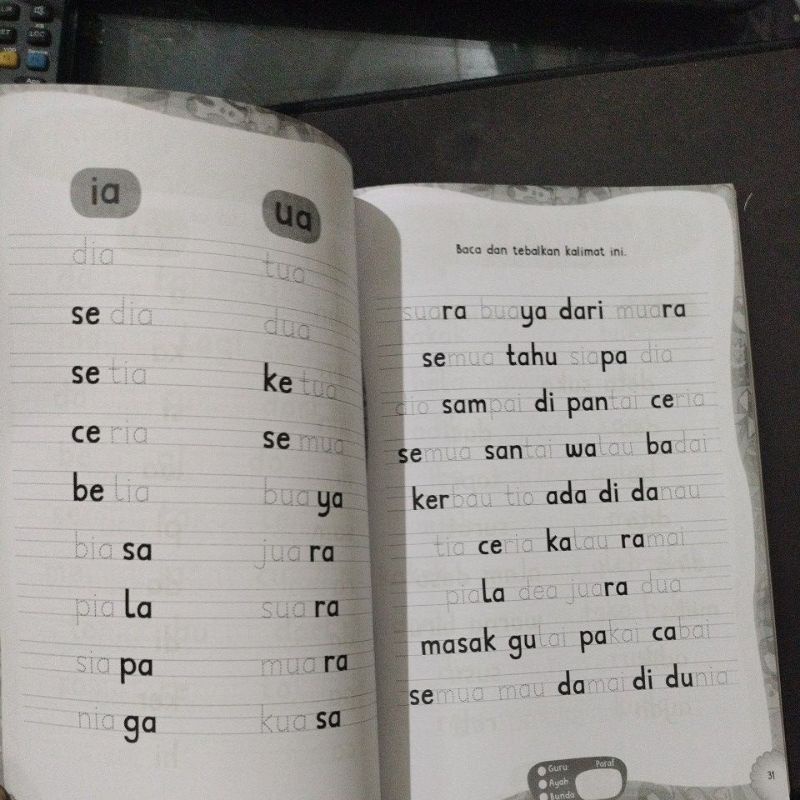 ia
dia
se dia
se tia
ce ria
be lia
bia sa
pia la
sia pa
nia ga
ua
tua
dua
ke tua
se mua
bua ya
jua ra
sua ra
mua ra
kua sa
Baca dan tebalkan kalimat ini.
suara buaya dari muara
semua tahu siapa dia
dio sampai di pantai ceria
semua santai walau badai
kerbau tio ada di danau
tia ceria kalau ramai
piala dea juara dua
masak gulai pakai cabai
semua mau damai di dunia
Guru Paraf
Ayah
Bunda
31